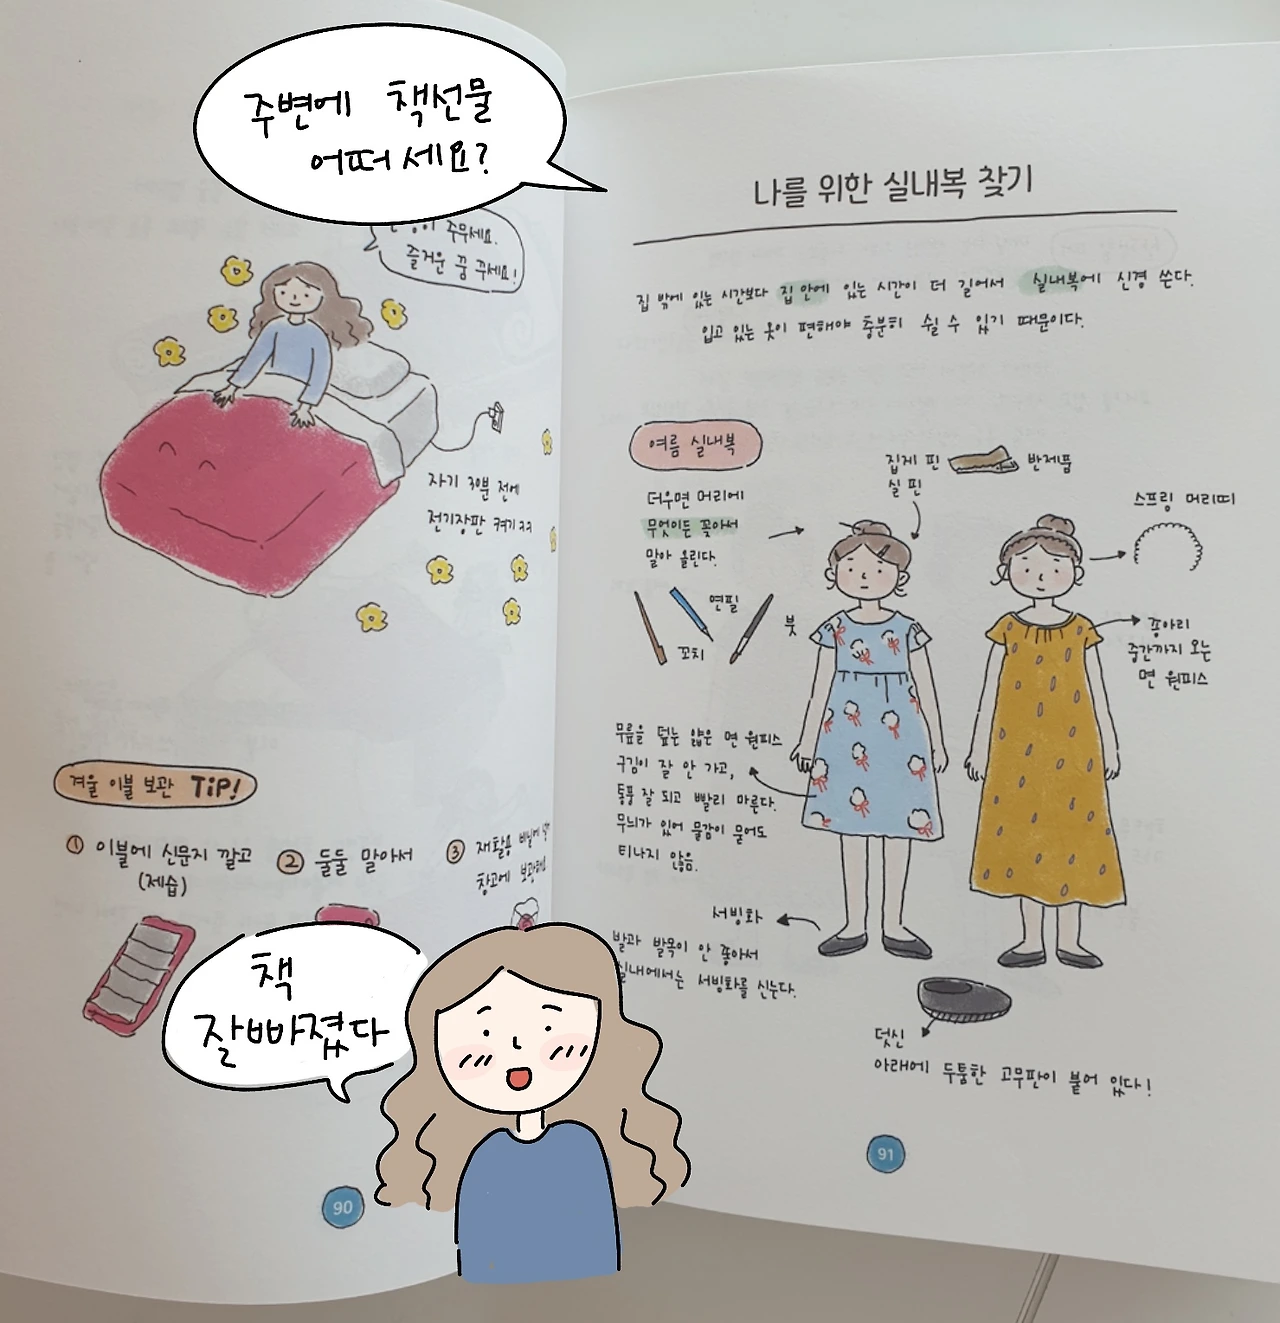 주변에 책선물
어떠세요?
주무세요.
즐거운 꿈 꾸세요!
자기 30분 전에
전기장판 켜기ㅋㅋ
겨울 이불 보관 TiP!
① 이불에 신문지 깔고
(제습)
② 둘둘 말아서
③ 재활용 비닐에
창고에
책
잘빠졌다
90
나를 위한 실내복 찾기
집 밖에 있는 시간보다 집 안에 있는 시간이 더 길어서 실내복에 신경 쓴다.
입고 있는 옷이 편해야 충분히 쉴 수 있기 때문이다.
여름 실내복
더우면 머리에
무엇이든 꽂아서
말아 올린다.
연필
꼬치
붓
집게 핀
실 핀
반제품
스프링 머리띠
종아리
중간까지 오는
면 원피스
무릎을 덮는 얇은 면 원피스
구김이 잘 안 가고,
통풍 잘 되고 빨리 마른다.
무늬가 있어 물감이 묻어도
티나지 않음.
서빙화
발과 발목이 안 좋아서
실내에서는 서빙화를 신는다.
덧신
아래에 두툼한 고무판이 붙어 있다!
91